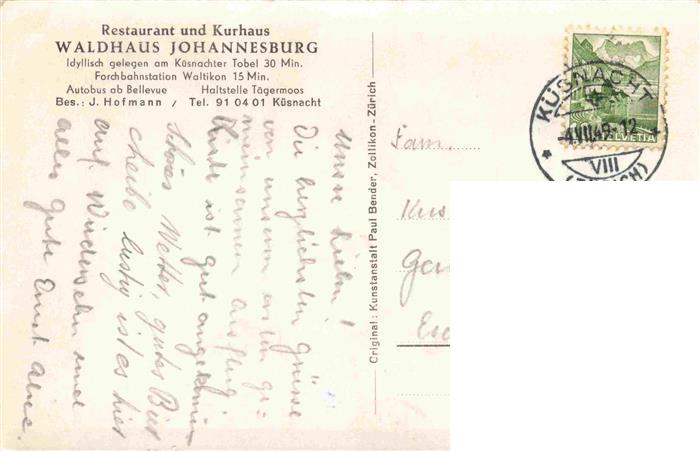 Restaurant und Kurhaus
WALDHAUS JOHANNESBURG
Idyllisch gelegen am Küsnachter Tobel 30 Min.
Forchbahnstation Waltikon 15 Min.
Autobus ab Bellevue Haltstelle Tägermoos
Bes.: J. Hofmann / Tel. 91 04 01 Küsnacht
Unsre Lieben!
Die herzlichsten Grüsse
von unserm
meinsamen Ausflug.
Kinder ist gut
Schöns Wetter, gutes Bier
cheibe lustig ist es hier
auf Wiedersehn und
alles Gute Ernst
Original: Kunstanstalt Paul Bender, Zollikon-Zürich
Fam.
Kus
Esc
HELVETIA
KÜSNACHT
VIII